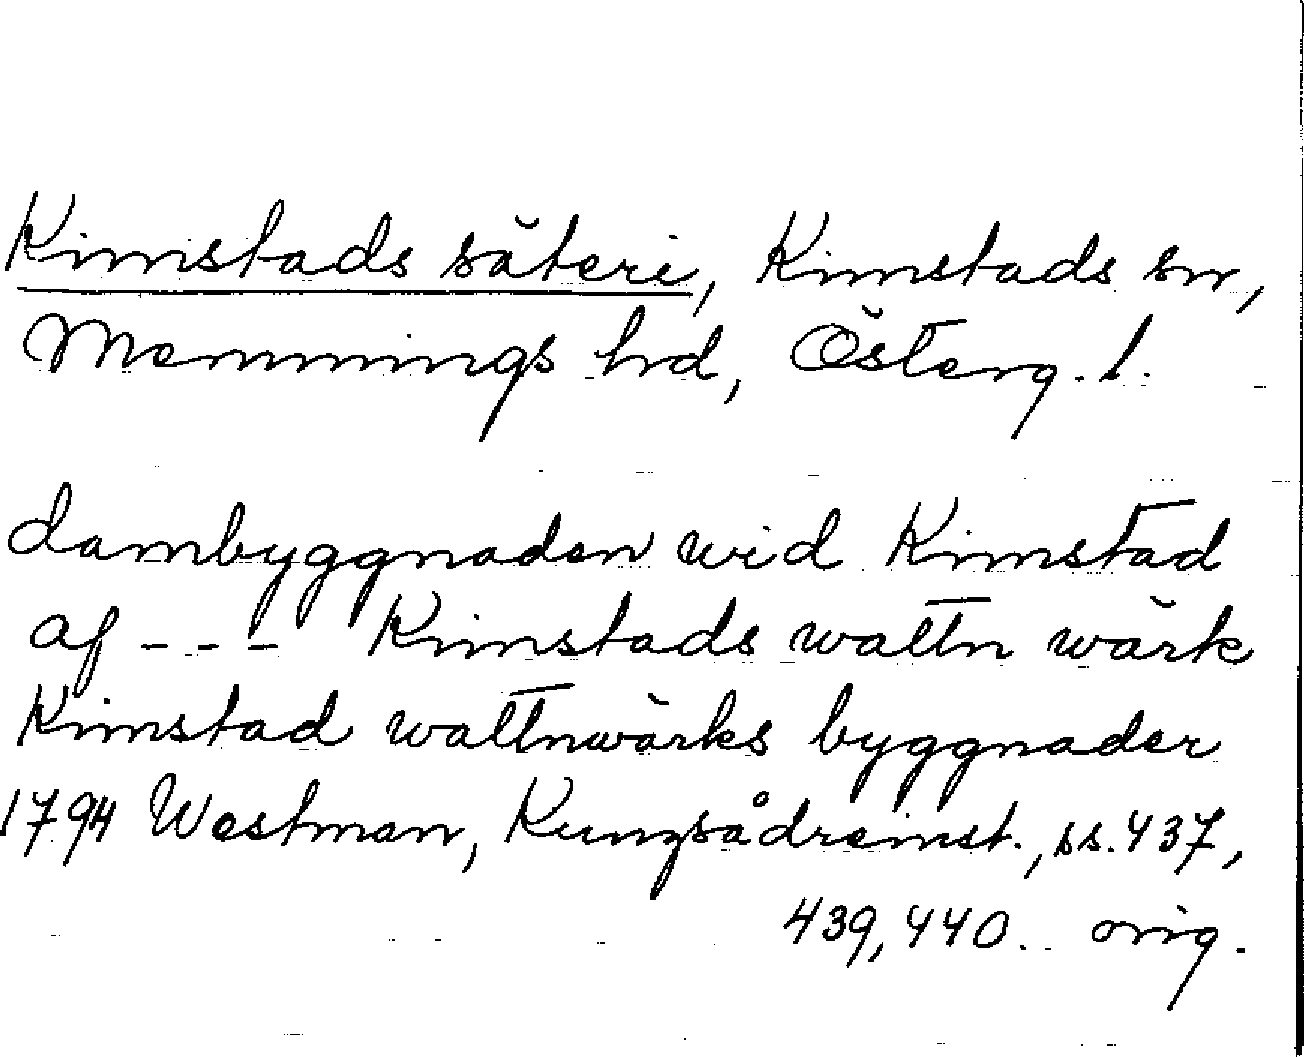 Kimstads säteri, Kimstads sn,
Memmings hd, Österg. l.
dambyggnaden wid Kimstad
af - - - Kimstads wattn wärk
Kimstad wattnwärks byggnader
1794 Westman, Kungsådreinst., ss. 437,
439, 440. orig.